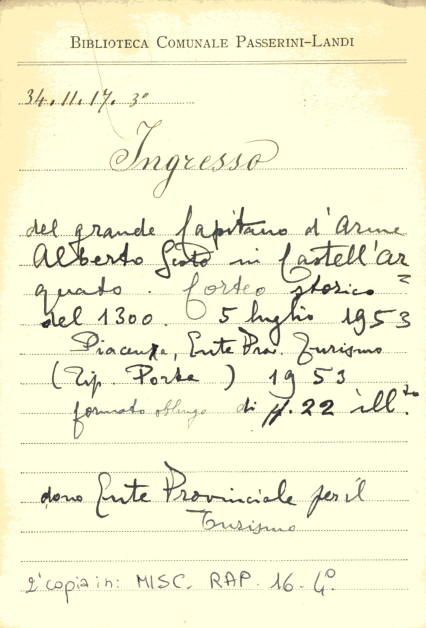 BIBLIOTECA COMUNALE PASSERINI-LANDI
34.11.17. 3°
Ingresso
del grande Capitano d'Arme
Alberto Scoto in Castell'Ar
quato. Corteo storico
del 1300. 5 luglio 1953
Piacenza, Ente Prov. Turismo
(Tip. Porta) 1953
formato oblungo di p. 22 ill.to
dono Ente Provinciale per il
Turismo
2ª copia in: MISC. RAP. 16. 4°.